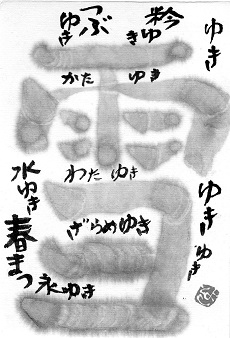 雪
ゆき
粉ゆき
つぶゆき
かたゆき
わたゆき
ざらめゆき
水ゆき
氷ゆき
春まつ
ゆき
ゆき